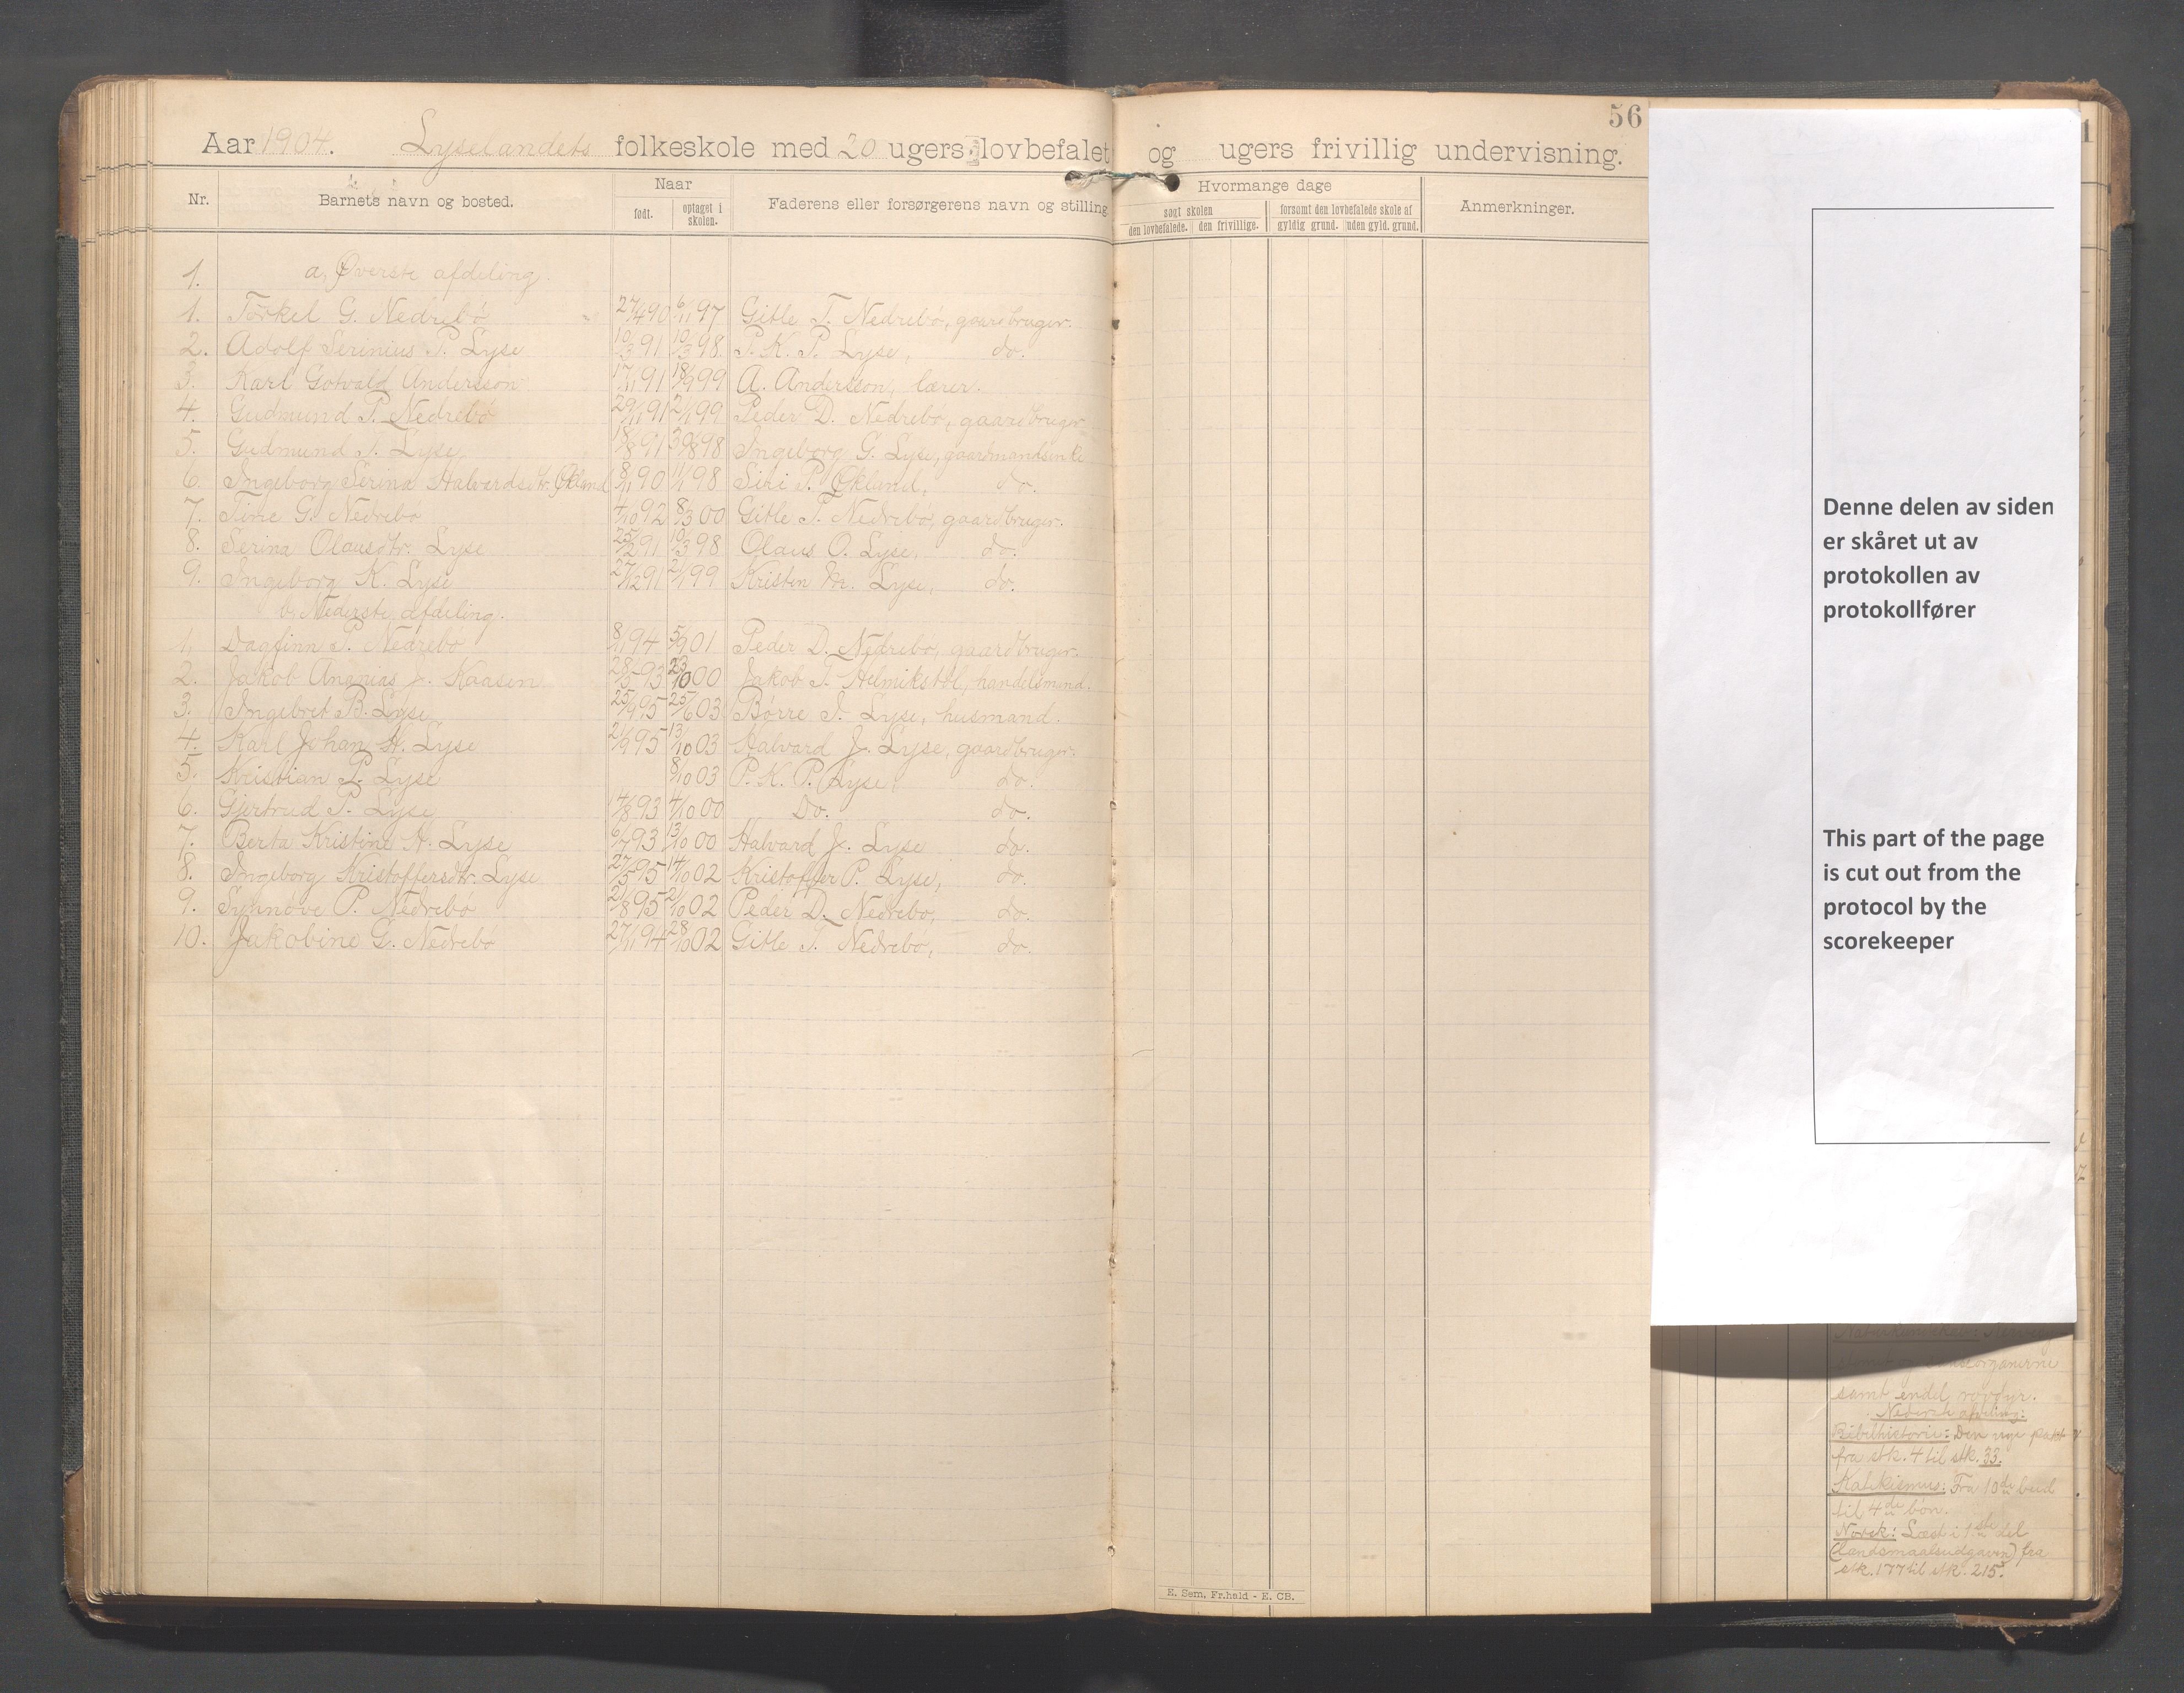 56
Aar 1904. Lyselandets folkeskole med 20 ugers lovbefalet og ugers frivillig undervisning.
Nr. Barnets navn og bosted. Naar født. optaget i skolen. Faderens eller forsørgerens navn og stilling Hvormange dage søgt skolen den lovbefalede. den frivillige. forsømt den lovbefalede skole af gyldig grund. uden gyld. grund. Anmerkninger.
1. a, Øverste afdeling.
1. Torkel G. Nedrebø 27/4 90 6/11 97 Gitle T. Nedrebø, gaardbruger.
2. Adolf Serinius P. Lyse 10/3 91 10/3 98. P. K. P. Lyse, do.
3. Karl Gotvald Andersson 17/11 91 18/9 99 A. Andersson, lærer.
4. Gudmund P. Nedrebø 29/11 91 2/1 99 Peder D. Nedrebø, gaardbruger
5. Gudmund T. Lyse, 18/8 91 30/8 98 Ingeborg G. Lyse, gaardmandsenke
6. Ingeborg Serina Halvardsdtr. Økland 8/11 90 11/1 98 Siri P. Økland, do.
7. Tine G. Nedrebø 4/10 92 8/3 00 Gitle T. Nedrebø, gaardbruger.
8. Serina Olausdtr. Lyse 25/2 91 10/3 98 Olaus O. Lyse, do.
9. Ingeborg K. Lyse 27/12 91 2/1 99 Kristen Lyse, do.
b, Nederste afdeling.
1. Dagfinn P. Nedrebø 8/1 94 5/9 01 Peder D. Nedrebø, gaardbruger.
2. Jakob Ananias J. Kaasen 28/5 93 23/10 00 Jakob T. Helmikstøl, handelsmand.
3. Ingebret B. Lyse 25/9 95 25/6 03 Børre I. Lyse, husmand.
4. Karl Johan H. Lyse 2/9 95 13/10 03 Halvard J. Lyse, gaardbruger.
5. Kristian P. Lyse 8/10 03 P. K. P. Lyse, do.
6. Gjertrud P. Lyse 14/8 93 4/10 00 Do. do.
7. Berta Kristine H. Lyse 6/7 93 13/10 00 Halvard J. Lyse do.
8. Ingeborg Kristoffersdtr. Lyse 27/5 95 14/10 02 Kristoffer P. Lyse, do.
9. Synnøve P. Nedrebø 2/8 95 2/10 02 Peder D. Nedrebø, do.
10. Jakobine G. Nedrebø 27/1 94 28/10 02 Gitle T. Nedrebø, do.
E. Sem, Fr.hald - E. CB.
Denne delen av siden
er skåret ut av
protokollen av
protokollfører
This part of the page
is cut out from the
protocol by the
scorekeeper
samt endel rovdyr.
Nederste afdeling:
Bibelhistorie: Den nye pakt
fra stk. 4 til stk. 33.
Katekismus: Fra 10de bud
til 4de bøn.
Norsk: Læst i 1ste del
(landsmaalsudgaven) fra
stk. 177 til stk. 215.